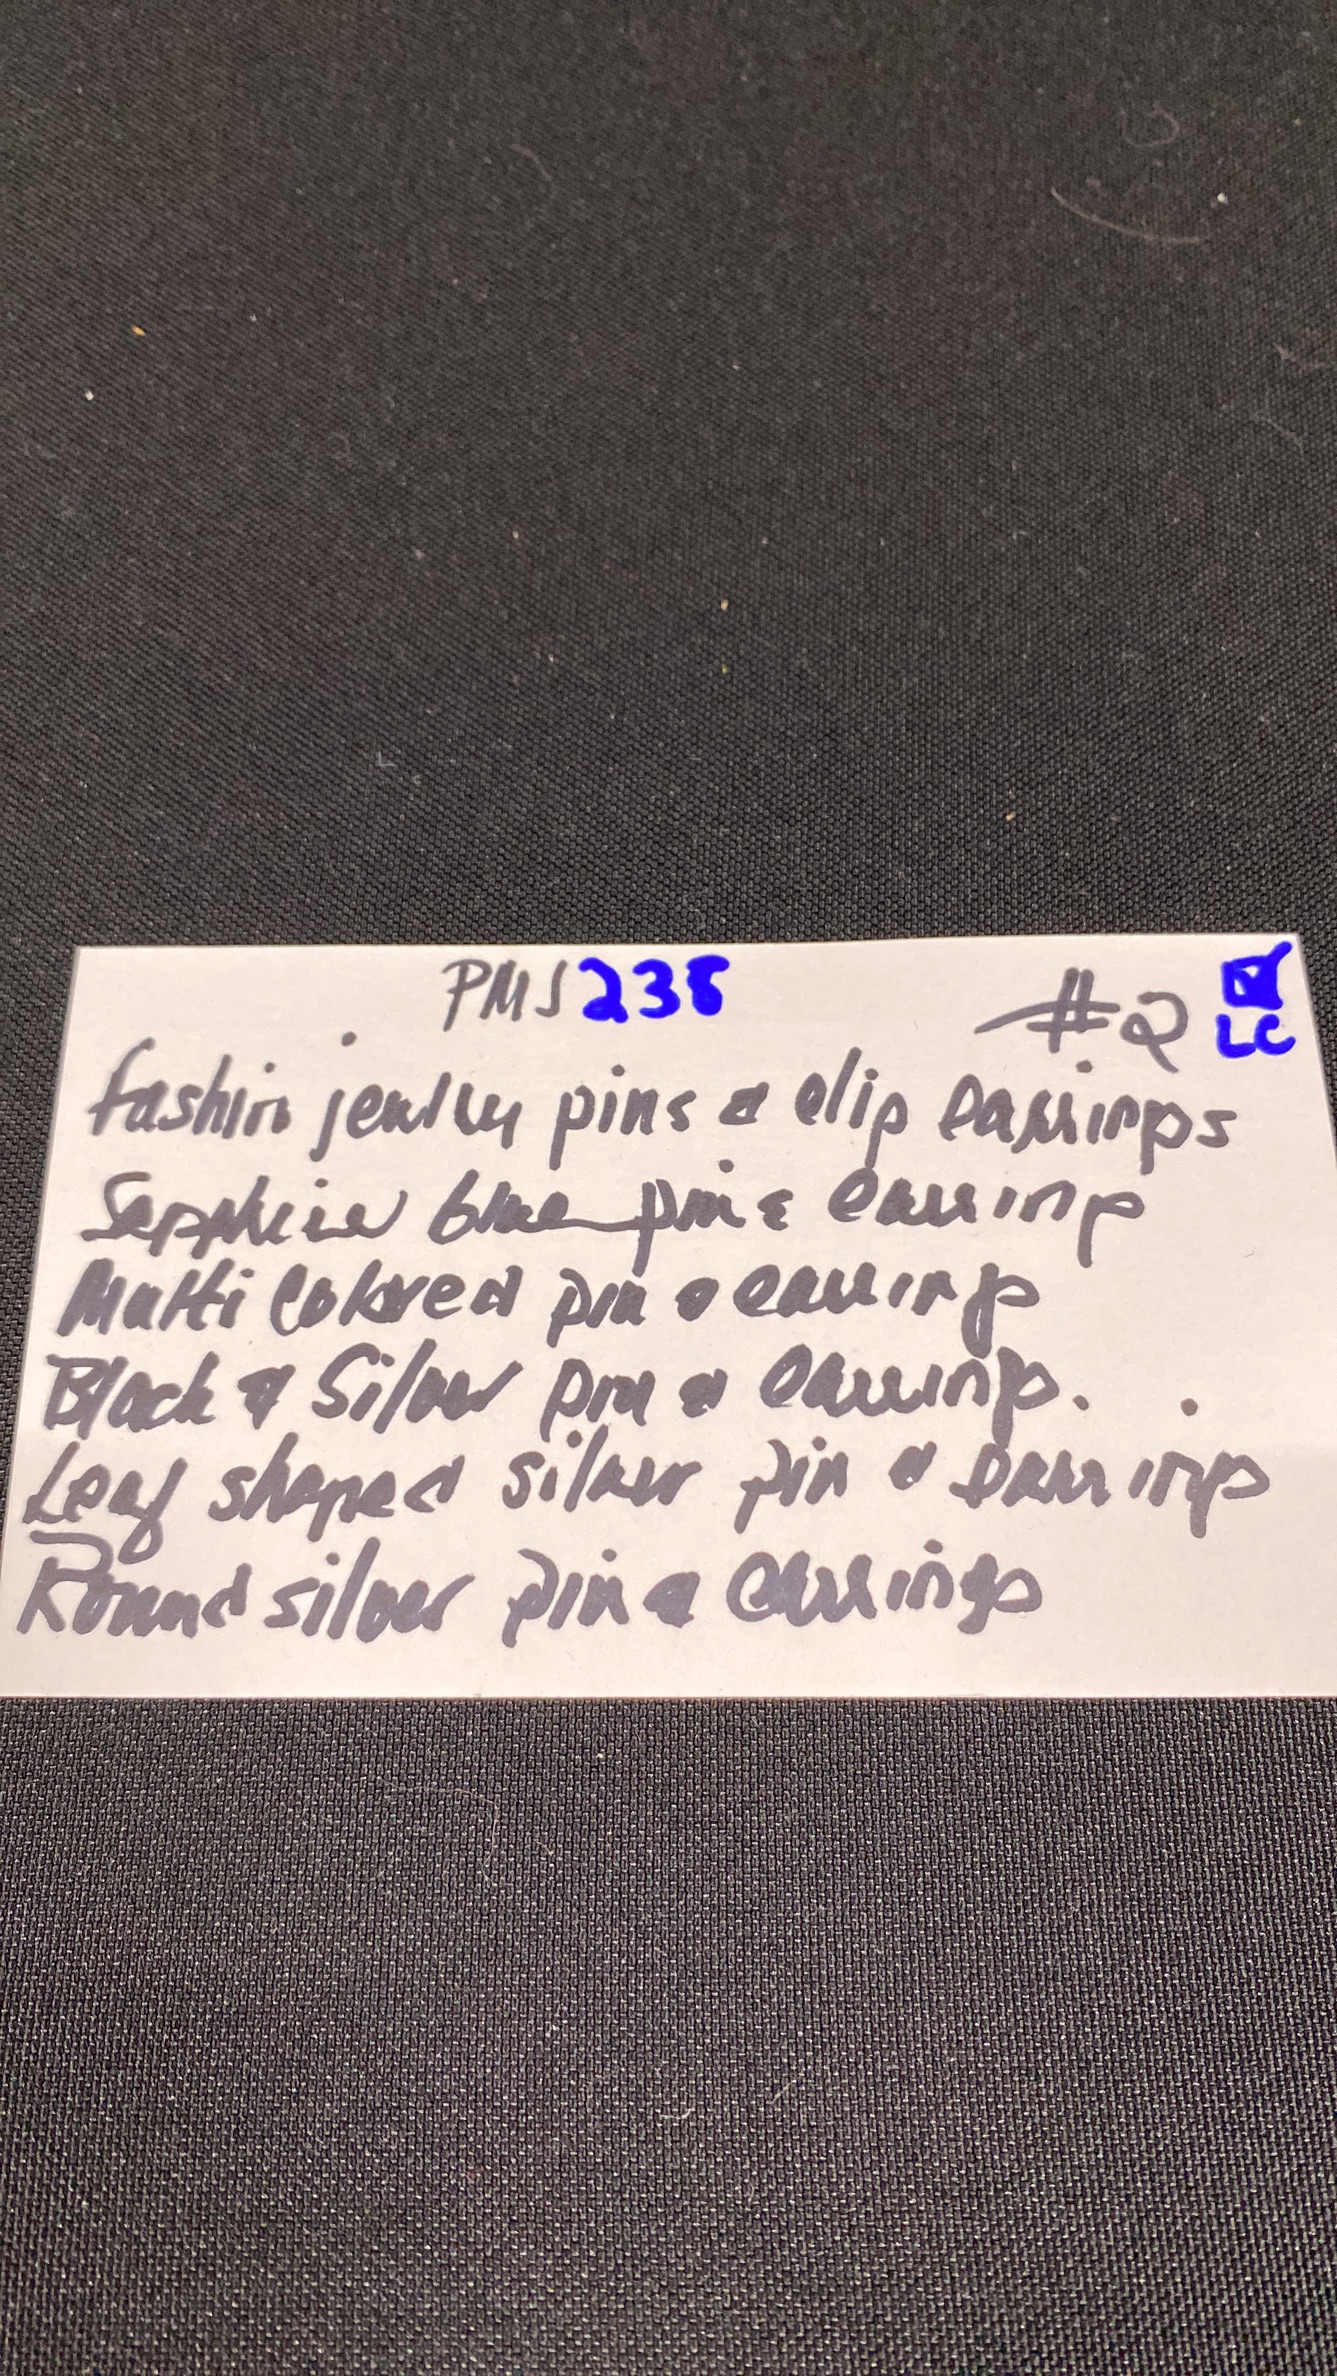 PMS 238 #2 LC
fashin jewlry pins & clip earrings
Sapphire blue pin & earring
Multi Colored pin & earrings
Black & Silver pin & earrings.
Leaf shaped silver pin & earrings
Round silver pin & earrings